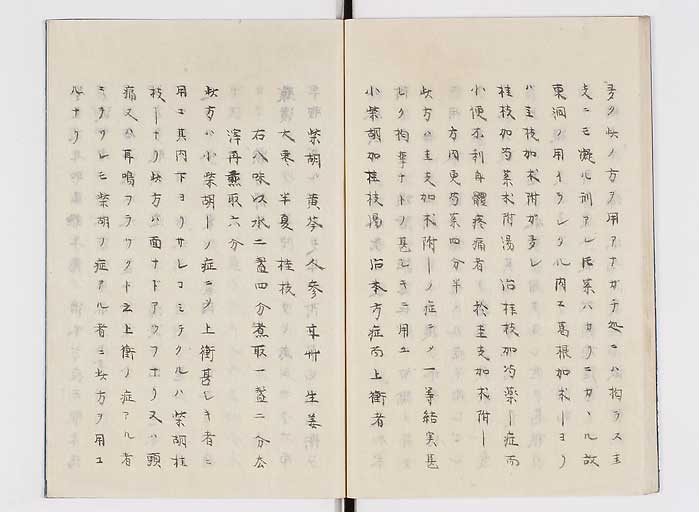 多ク此ノ方ヲ用アナガチ処ニハ拘ラス圭
支ニモ凝ル訓アレ𪜈薬ハカリニカヽル故
東洞ノ用イラレタル内ニ葛根加朮ーヨリ
ハ圭枝加朮附ガ多シ
桂枝加芍薬朮附湯 治桂枝加芍薬ー症而
小便不利身體疼痛者 於圭支加朮附ー
方内更芍薬四分半
此方ハ圭支加朮附ーノ症ニメ一等結実甚
シク拘挛ナトノ甚シキニ用ユ
小柴胡加桂枝湯 治本方症而上衝者
柴胡 黄芩 人参 甘艸 生姜
大棗 半夏 桂枝
右八味以水二盞四分煮取一盞二分去
滓再煎取六分
此方ハ小柴胡ーノ症ニメ上衝甚シキ者ニ
用ユ其内下ヨリサレコミテクルハ柴胡桂
枝ーナリ此方ハ面ナドアツヲナリ又ハ頭
痛又ハ耳鳴フラツクト云上衝ノ症アル者
ミテクレニ柴胡ノ症アル者ニ此方ヲ用ユ
ルナリ